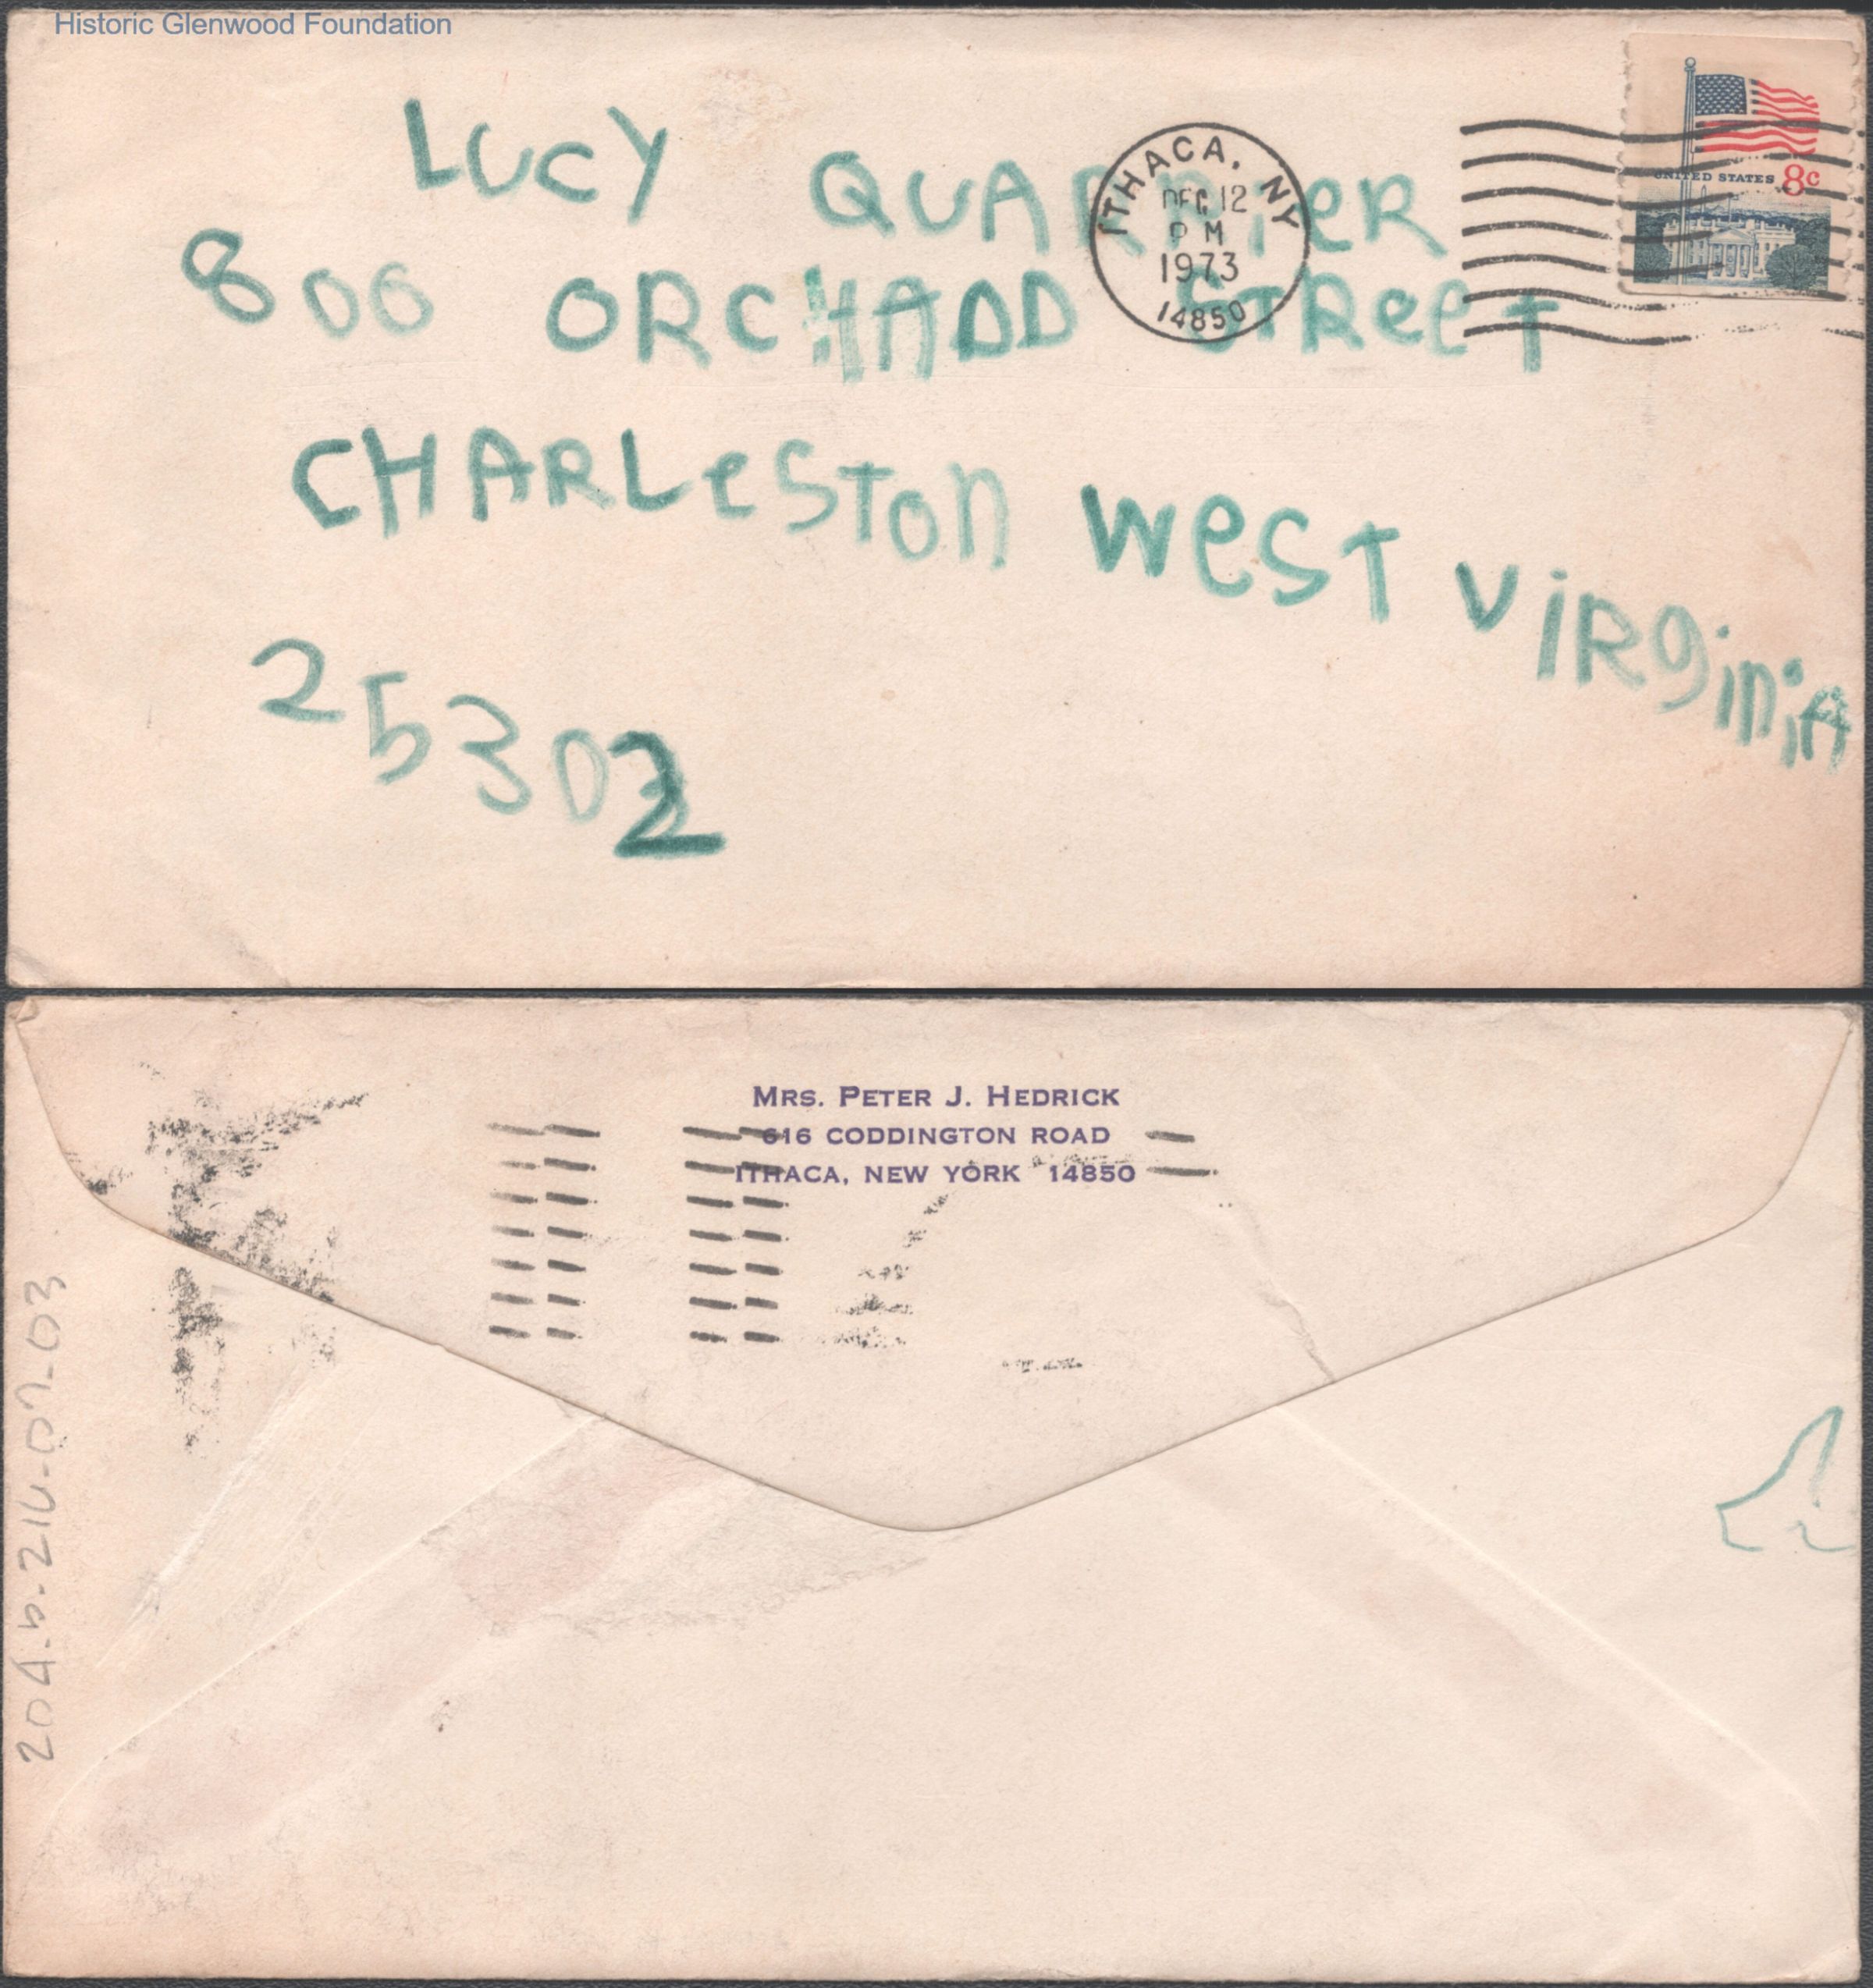 Historic Glenwood Foundation
LUCY QUARRieR
800 ORCHADD STReeT
CHARLeSTon WeST ViRginiA
25302
ITHACA, NY
DEC 12
PM
1973
14850
UNITED STATES 8c
MRS. PETER J. HEDRICK
616 CODDINGTON ROAD
ITHACA, NEW YORK 14850